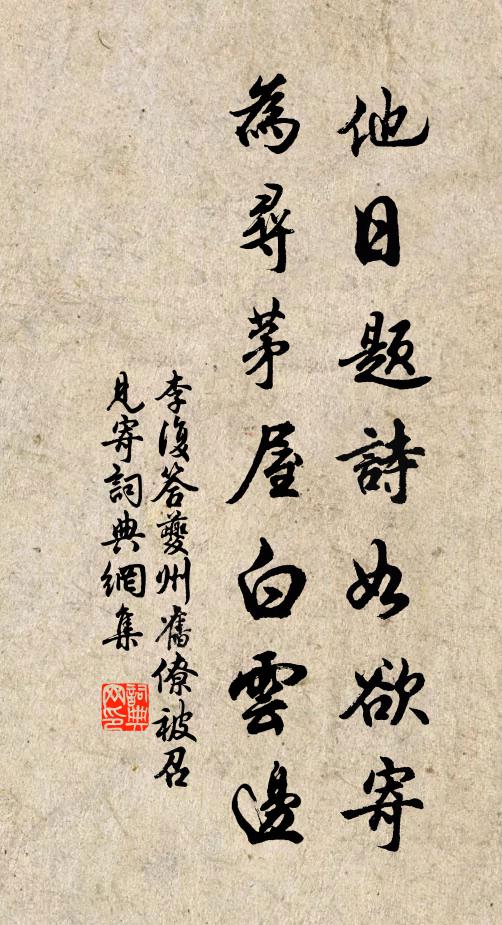 他日題詩如欲寄
為尋茅屋白雲邊
李復答夔州舊僚被召
見寄詞典網集
詞典網印